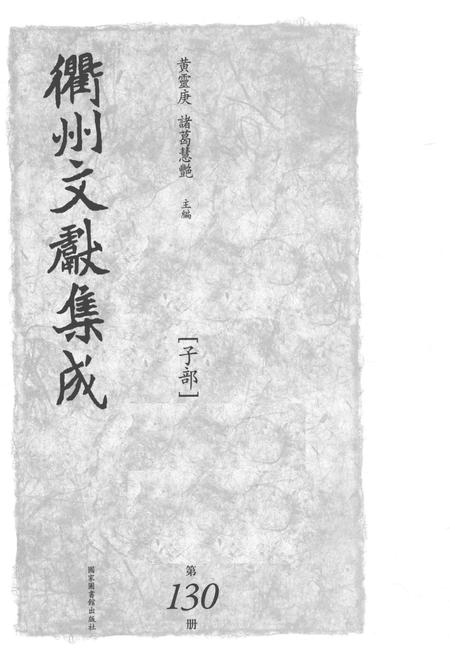 黃靈庚 諸葛慧艷 主編
衢州文獻集成
[子部]
第
130
册
國家圖書館出版社